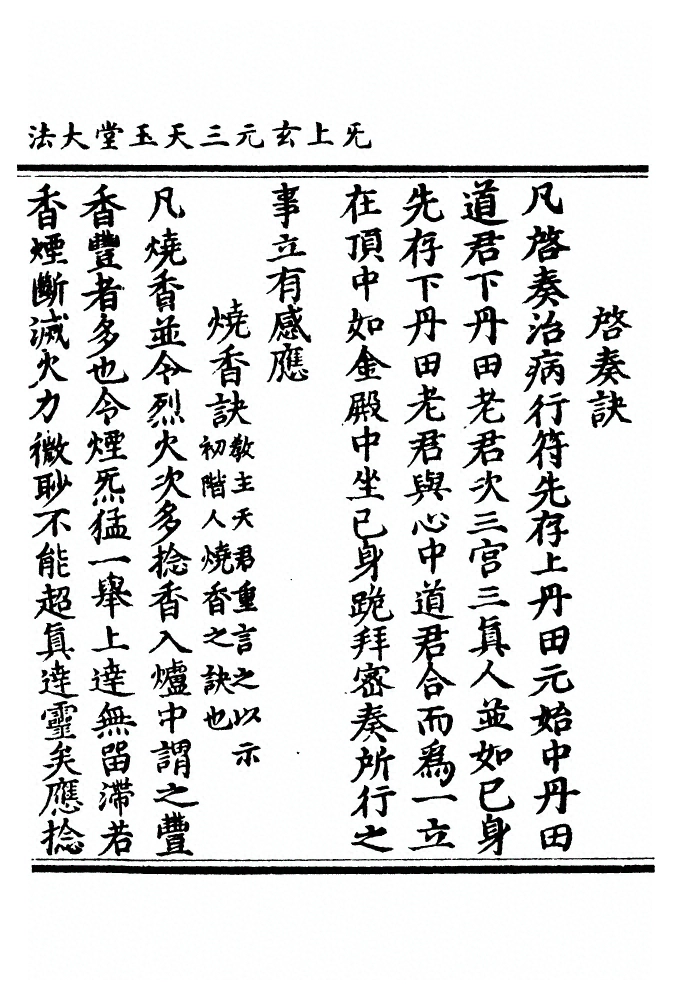 法大堂玉天三元玄上旡
啓奏訣
凡啓奏治病行符先存上丹田元始中丹田
道君下丹田老君次三宫三眞人並如已身
先存下丹田老君與心中道君合而爲一立
在頂中如金殿中坐已身跪拜密奏所行之
事立有感應
燒香訣教主天君重言之以示
初階人燒香之訣也
凡燒香並令烈火次多捻香入爐中謂之豐
香豐者多也令煙炁猛一舉上達無畱滯若
香煙斷滅火力微眇不能超眞達靈矣應捻